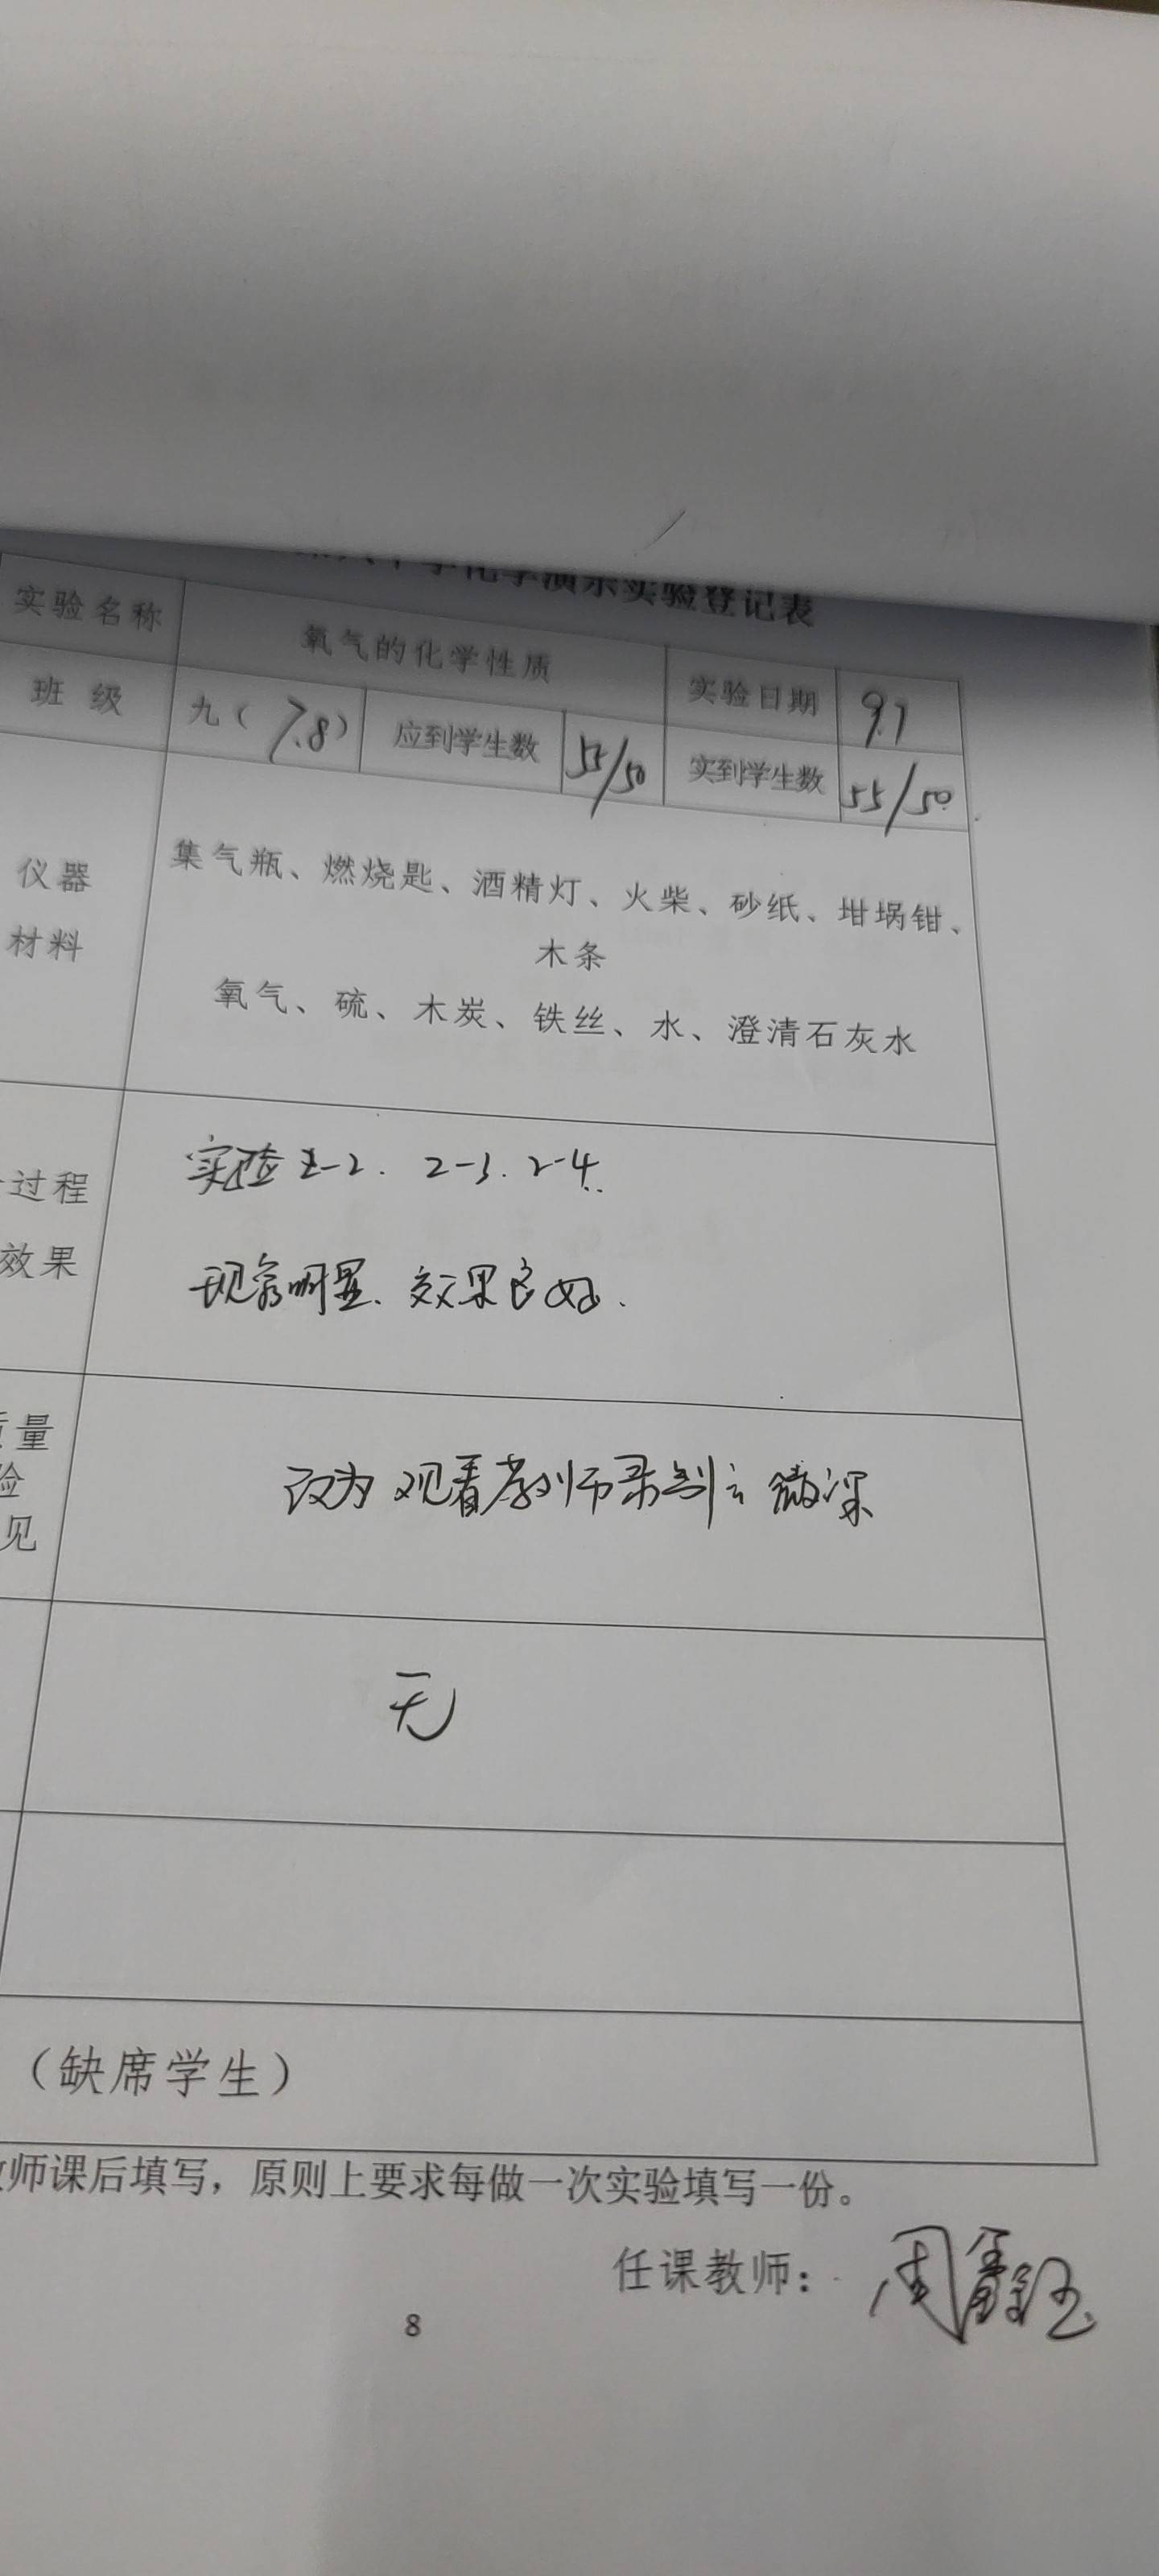 中学化学演示实验登记表
实验名称 氧气的化学性质 实验日期 9.7
班 级 九（7.8） 应到学生数 55/50 实到学生数 55/50
仪器
材料
集气瓶、燃烧匙、酒精灯、火柴、砂纸、坩埚钳、
木条
氧气、硫、木炭、铁丝、水、澄清石灰水
过程
效果
实验2-2. 2-3. 2-4.
现象明显、效果良好.
量
验
见
改为 观看教师录制的微课
无
（缺席学生）
师课后填写，原则上要求每做一次实验填写一份。
任课教师：周
8